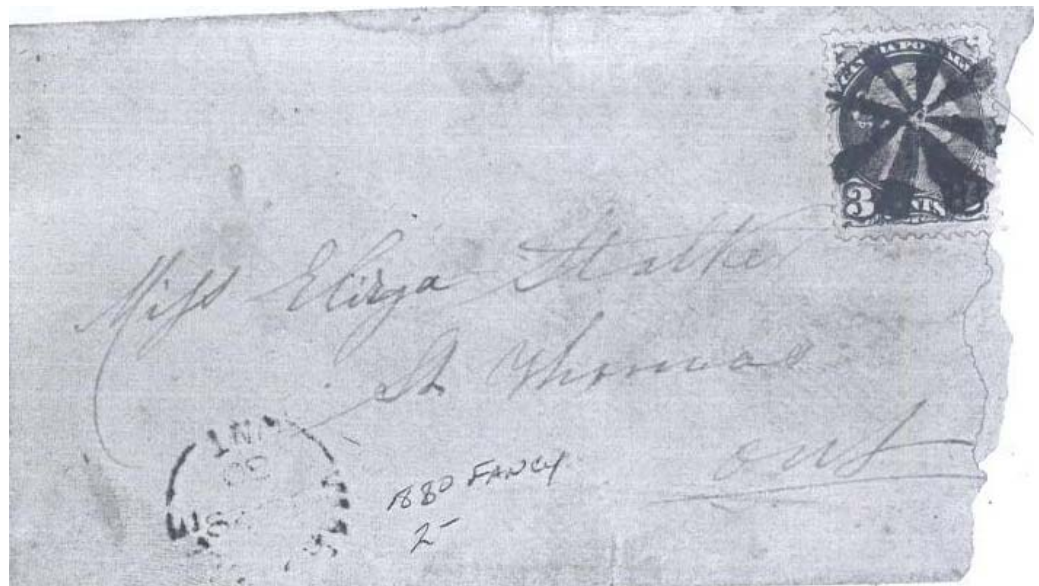 CANADA POSTAGE
3 CENTS
Miss Eliza Stalker
St Thomas
Ont
1880 FANCY
2-